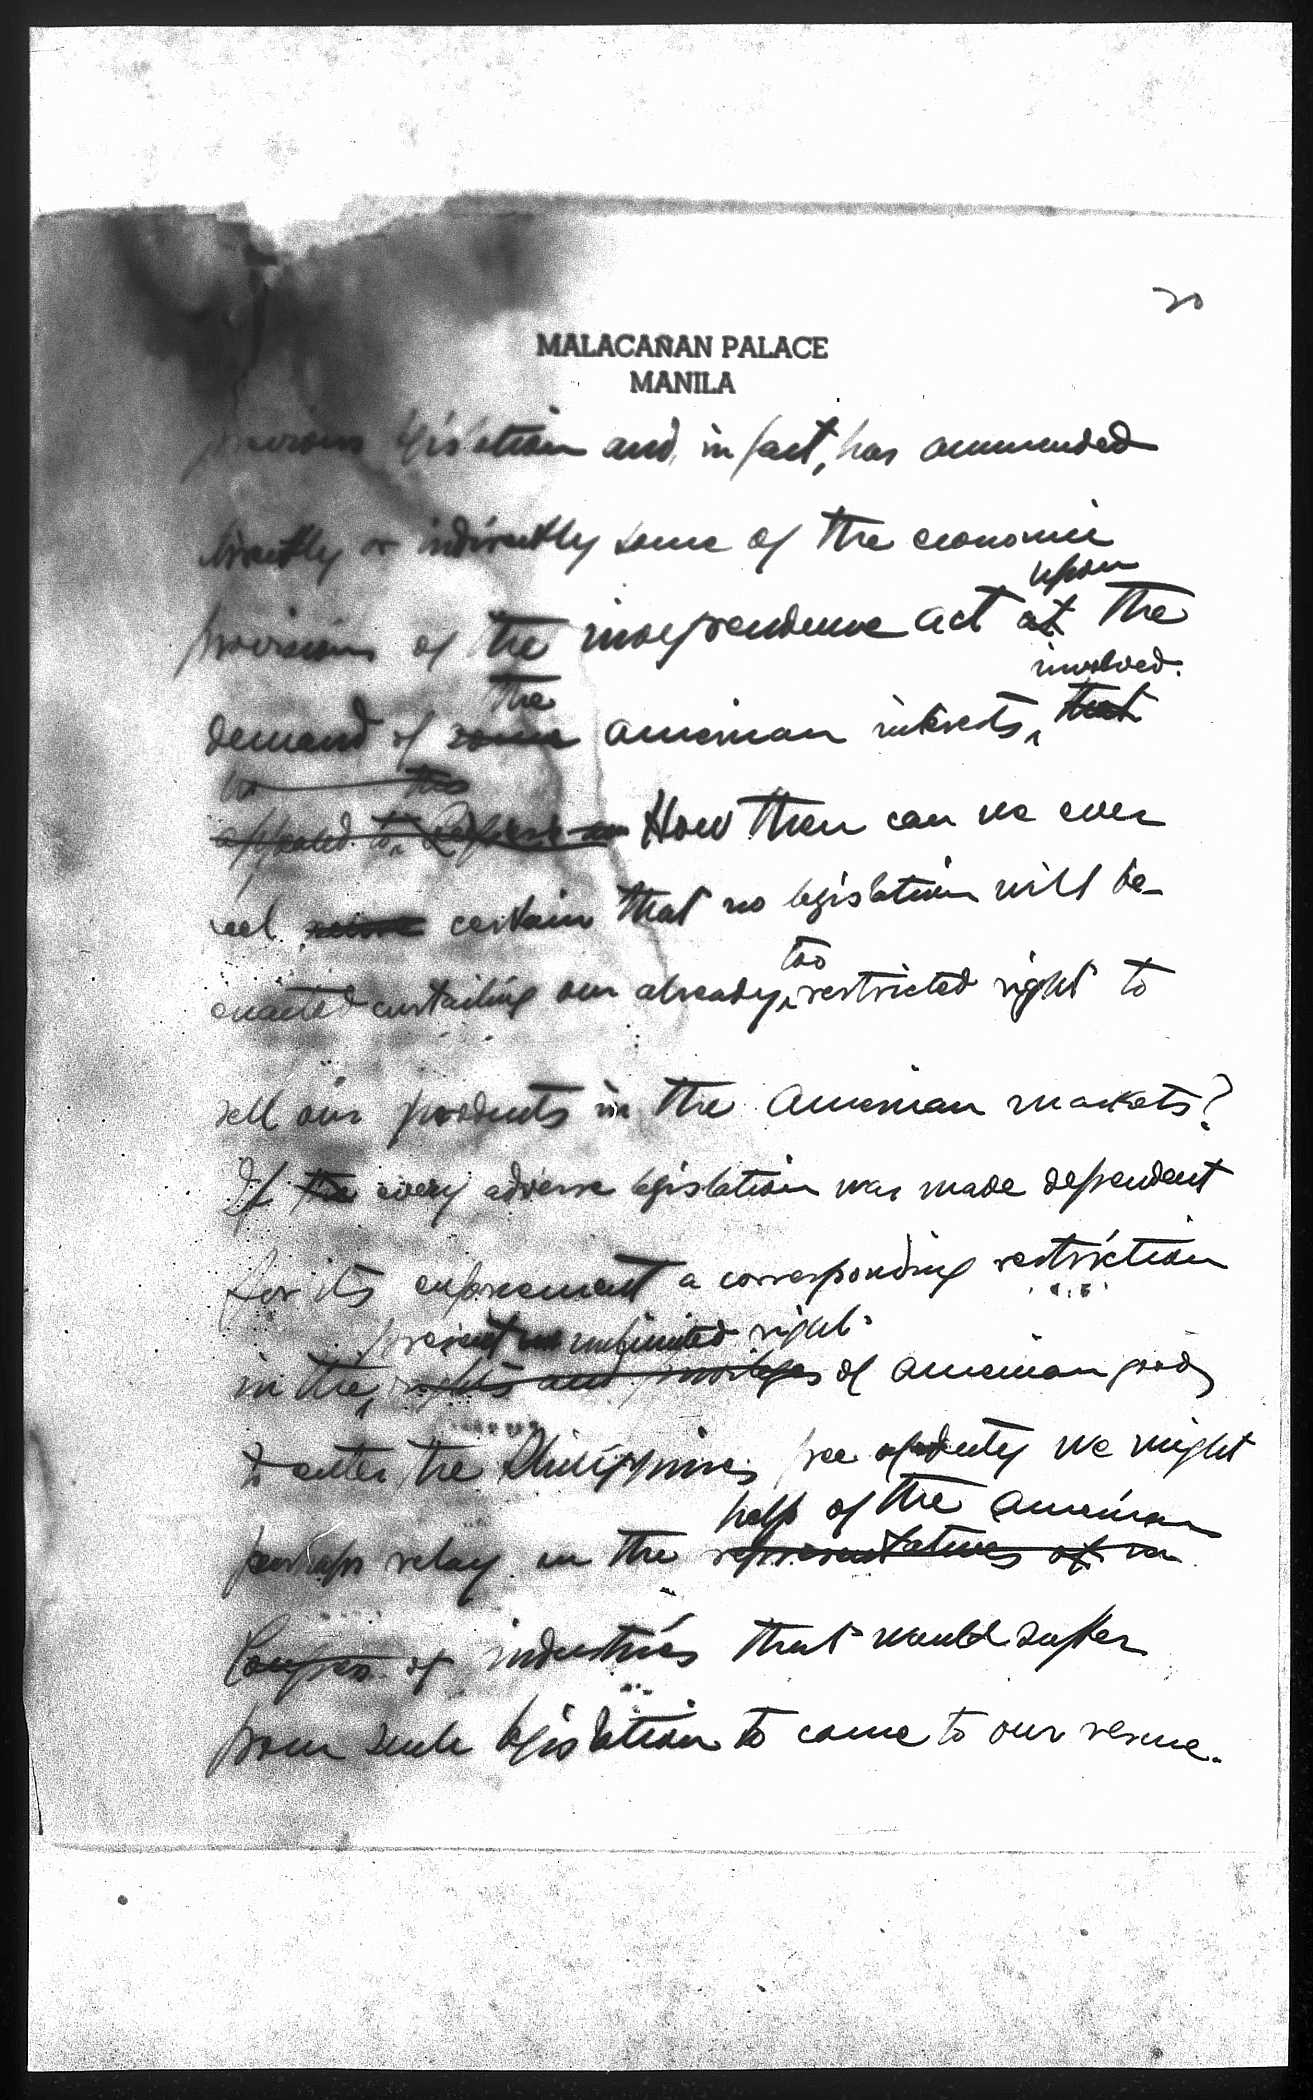 20
MALACAÑAN PALACE
MANILA
previous legislation and, in fact, has ammended
directly or indirectly some of the economic
upon
provisions of the independence act at the
involved.
the
demand of some american interests, that
the
appealed to How then can we ever
feel certain that no legislation will be
too
enacted curtailing our already restricted right to
sell our products in the American markets?
If the every adverse legislation was made dependent
for its enforcement a corresponding restriction
present unlimited right
in the rights and privileges of american goods
to enter the Philippines free of duty we might
help of the American
perhaps relay on the representatives of
Congress of industries that would suffer
from such legislation to come to our rescue.